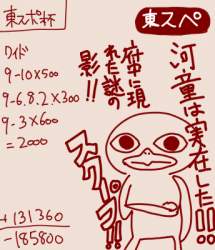 東スポ杯
ワイド
9-10×500
9-6.8.2×300
9-3×600
=2000
+131360
-185800
東スペ
河童は実在した!!!
府中に現
れた謎の
影!!
スクープ!!